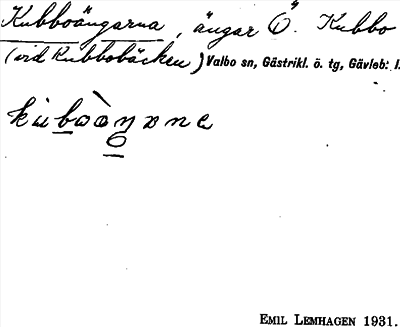 Kubboängarna, ängar Ö. Kubbo
(vid Kubbobäcken) Valbo sn, Gästrikl. ö. tg, Gävleb: l.
EMIL LEMHAGEN 1931.